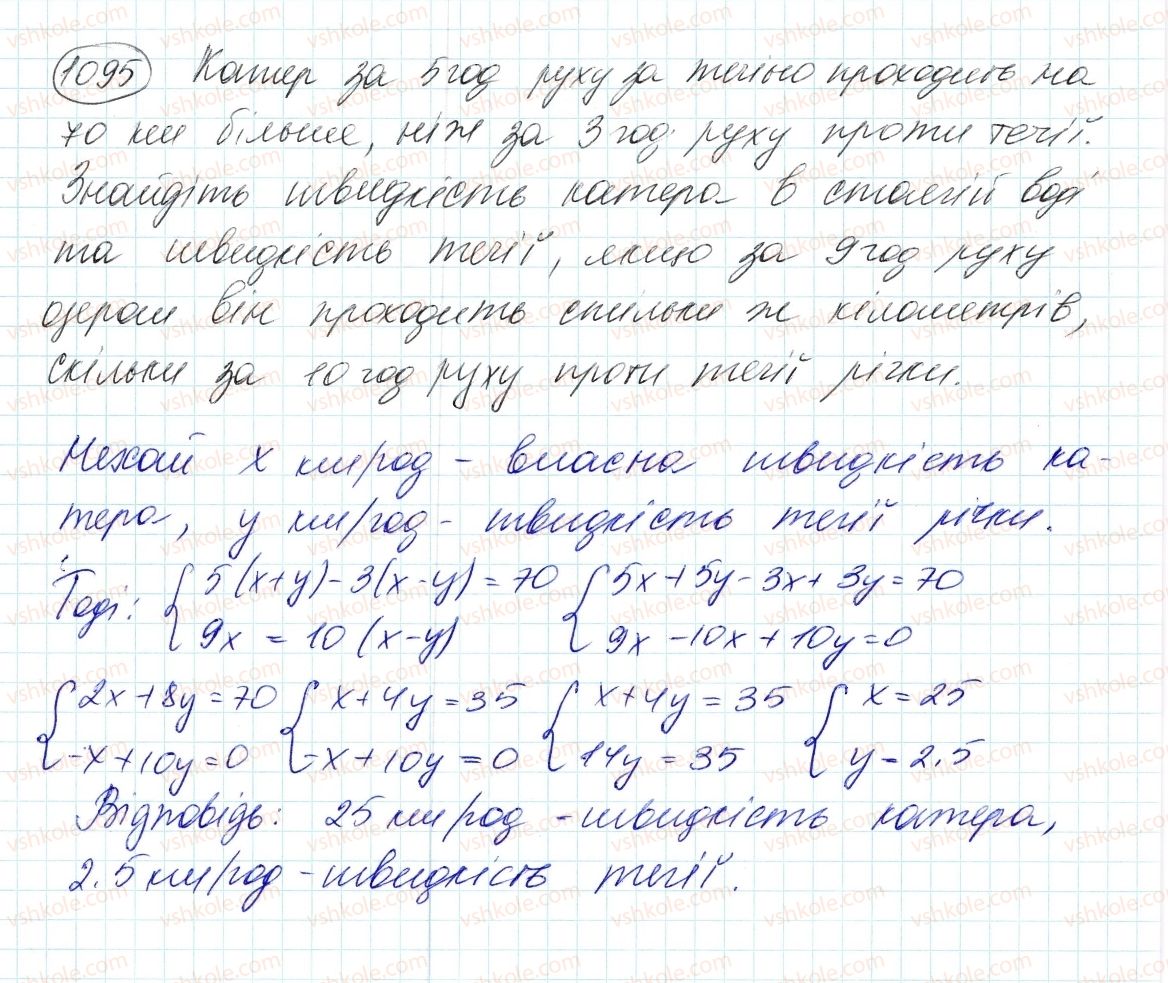 1095 Катер за 5 год руху за течією проходить на
70 км більше, ніж за 3 год руху проти течії.
Знайдіть швидкість катера в стоячій воді
та швидкість течії, якщо за 9 год руху
озером він проходить стільки ж кілометрів,
скільки за 10 год руху проти течії річки.
Нехай x км/год - власна швидкість ка-
тера, y км/год - швидкість течії річки.
Тоді: { 5(x+y)-3(x-y)=70 { 5x+5y-3x+3y=70
9x = 10(x-y) 9x-10x+10y=0
{ 2x+8y=70 { x+4y=35 { x+4y=35 { x=25
-x+10y=0 -x+10y=0 14y=35 y=2.5
Відповідь: 25 км/год - швидкість катера,
2.5 км/год - швидкість течії.
vshkole.com